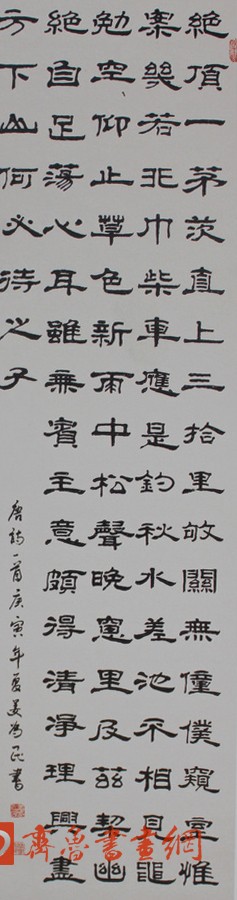 絕頂一茅茨直上三拾里敂關無僮僕窺室惟
案幾若非巾柴車應是釣秋水差池不相見黽
勉空仰止草色新雨中松聲晚窻里及茲契幽
絕自足蕩心耳雖無賓主意頗得清淨理興盡
方下山何必待之子
唐詩一首庚寅年夏姜民書
齊魯書畫網